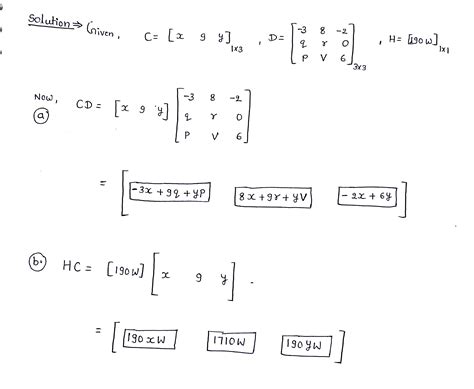 Solution → Given, C = [x 9 y]1x3 , D = [-3 8 -2 , H = [190w]1x1
q r 0
P V 6]3x3
Now,
(a) CD = [x 9 y] [-3 8 -2
q r 0
P V 6]
= [-3x + 9q + yP 8x + 9r + yV -2x + 6y]
(b.) HC = [190w] [x 9 y] .
= [190xw 1710w 190yw]